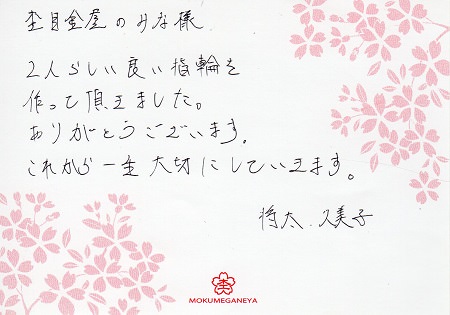 杢目金屋のみな様
2人らしい良い指輪を
作って頂きました。
ありがとうございます。
これから一生大切にしていきます。
将太 久美子
杢
MOKUMEGANEYA